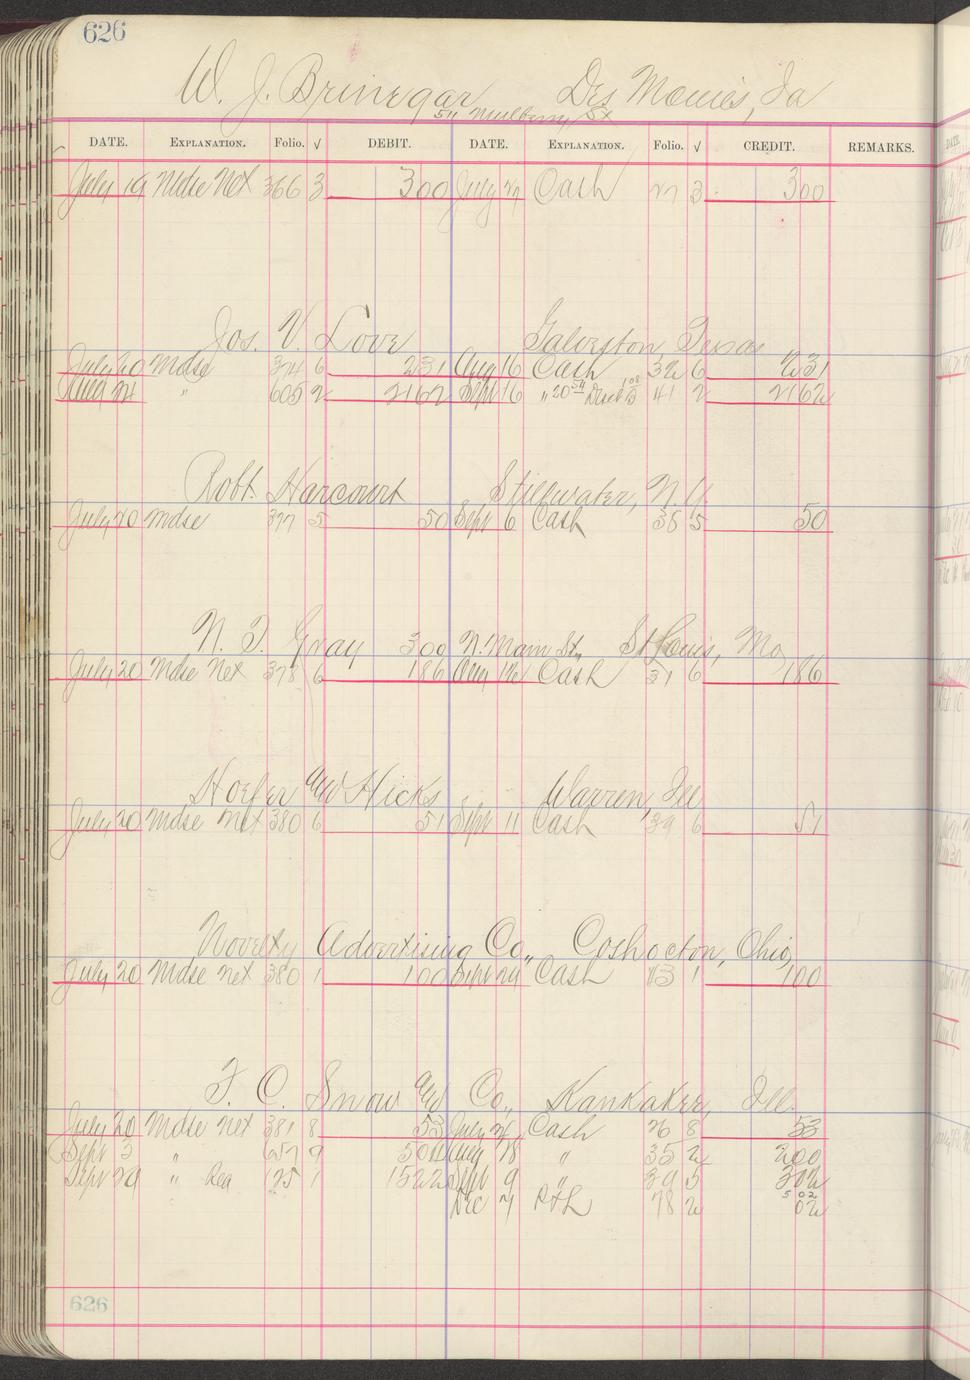 626
W. J. Brinegar Des Moines, Ia
511 Mulberry St
DATE. EXPLANATION. Folio. √ DEBIT. DATE. EXPLANATION. Folio. √ CREDIT. REMARKS.
July 19 Mdse Net 366 3 300 July 27 Cash 27 3 300
Jos. V. Love Galveston Texas
July 20 Mdse 374 6 231 Aug 16 Cash 32 6 231
Aug 24 " 605 2 2162 Sept 16 " 20 54 Disct 1 08 41 2 2162
Robt. Harcourt Stillwater, N.Y.
July 20 Mdse 377 5 50 Sept 6 Cash 38 5 50
N. T. Gray 300 N. Main St., St Louis, Mo
July 20 Mdse Net 378 6 186 Aug 12 Cash 31 6 186
Hoefer & Hicks Warren, Ill
July 20 Mdse Net 380 6 51 Sept 11 Cash 39 6 51
Novelty Advertising Co., Coshocton, Ohio
July 20 Mdse Net 380 1 100 Sept 29 Cash 1 100
F. C. Snow & Co., Kankakee, Ill.
July 20 Mdse Net 381 8 53 July 26 Cash 26 8 53
Sept 3 " 657 7 Aug 28 " 35 2 200
Sept 29 " 125 1 1522 Sept 9 " 39 5 302
Dec 7 78 2 5 02
02
626